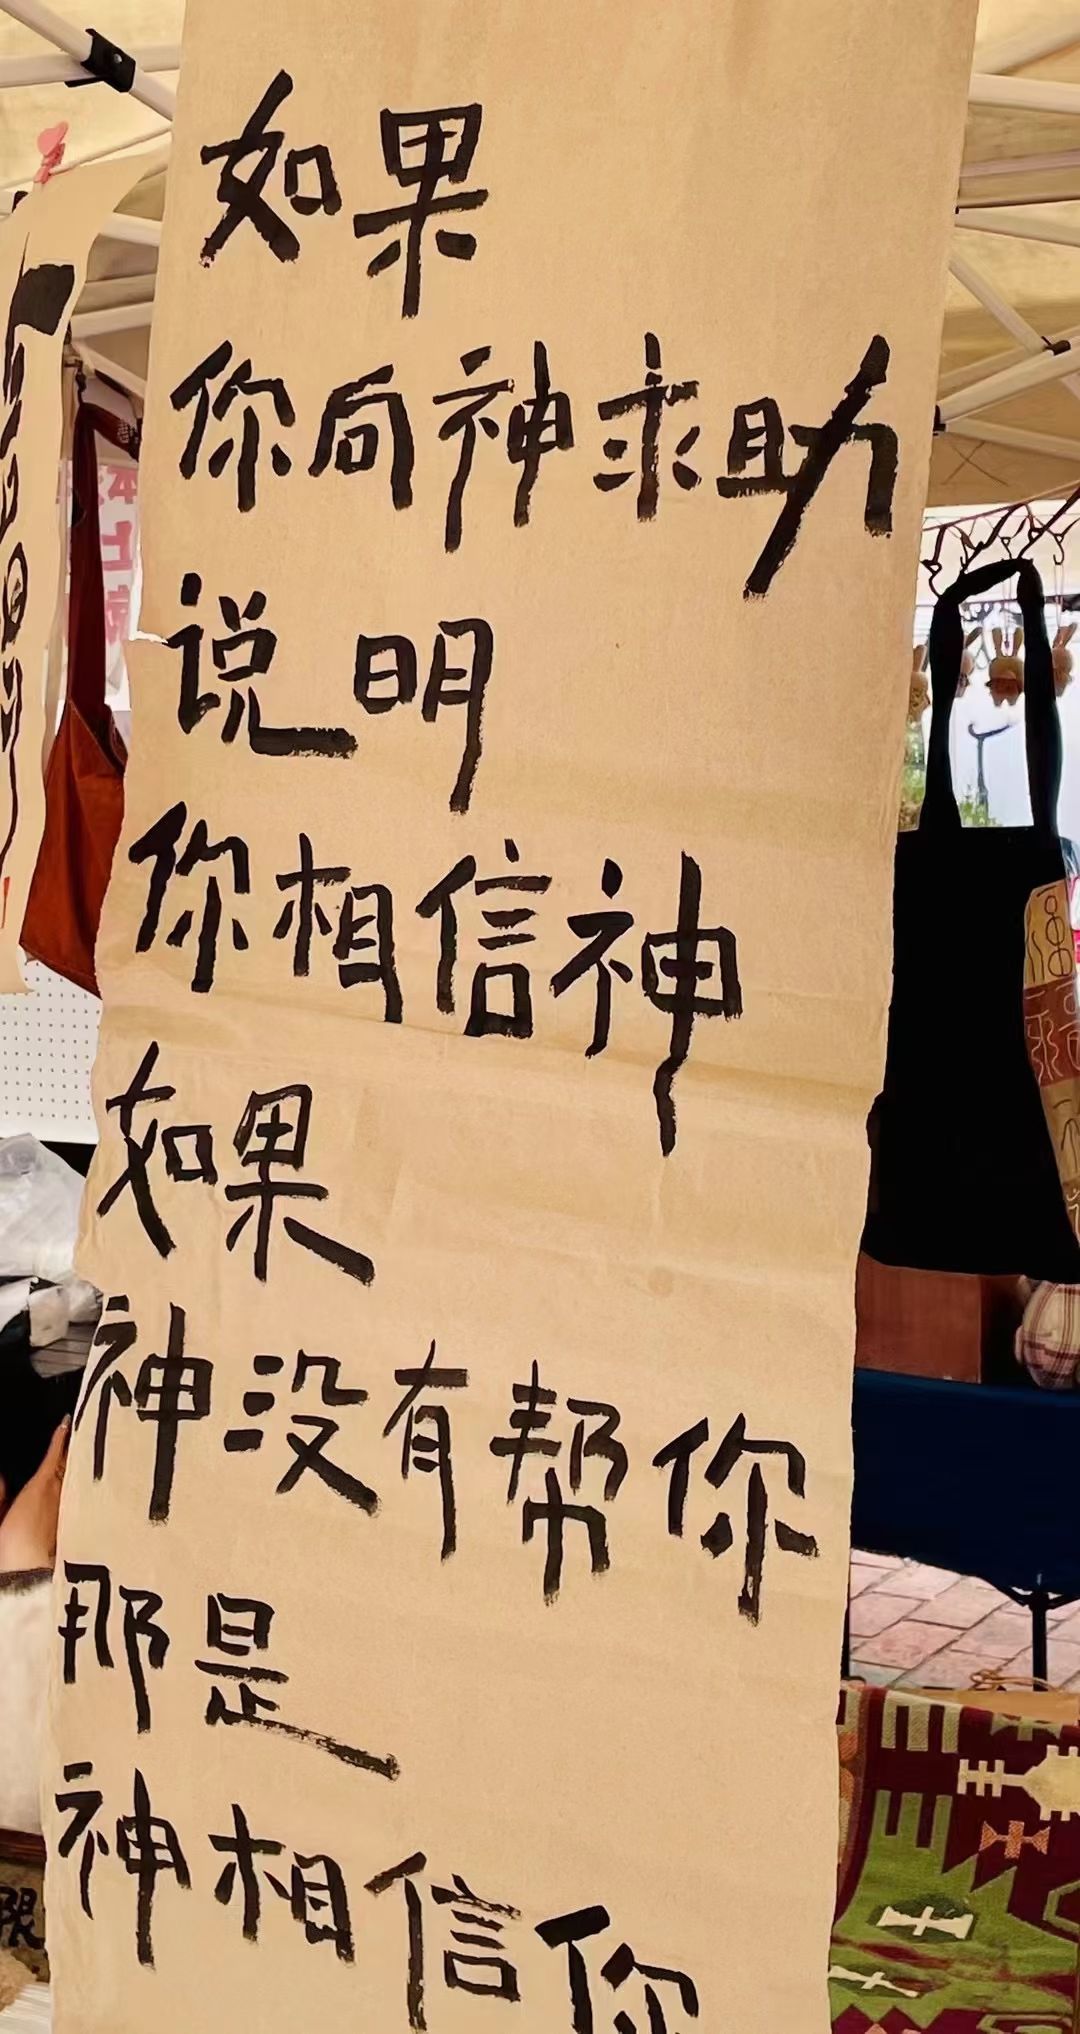 如果
你向神求助
说明
你相信神
如果
神没有帮你
那是
神相信你